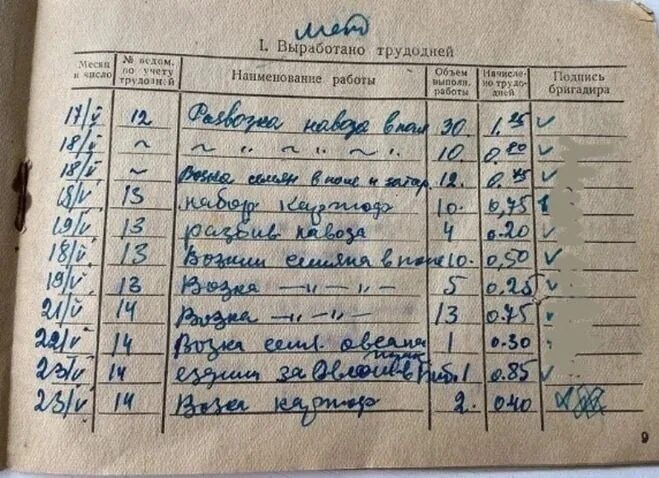 I. Выработано трудодней
Месяц и число № ведом. по учету трудодней Наименование работы Объем выполн. работы Начислено трудодней Подпись бригадира
17/V 12 Развозка навоза в поля 30. 1,25
18/V ~ ~ " ~ " ~ " 10. 0.80
18/V ~ Возка семян в поле и 12. 0.75
18/V. 13 набор картоф 10. 0,75
19/V 13 разбив навоза 4 0.20
18/V. 13 Возили семяна в поле 10. 0,50
19/V. 13 Возка —"—"— 5 0,25
21/V 14 Возка —"—"— 13 0.75
22/V. 14 Возка сем. овсяна 1 0.30
23/V 14 ездили за в 1 0.85
23/V 14 Возка картоф 2. 0.40
9